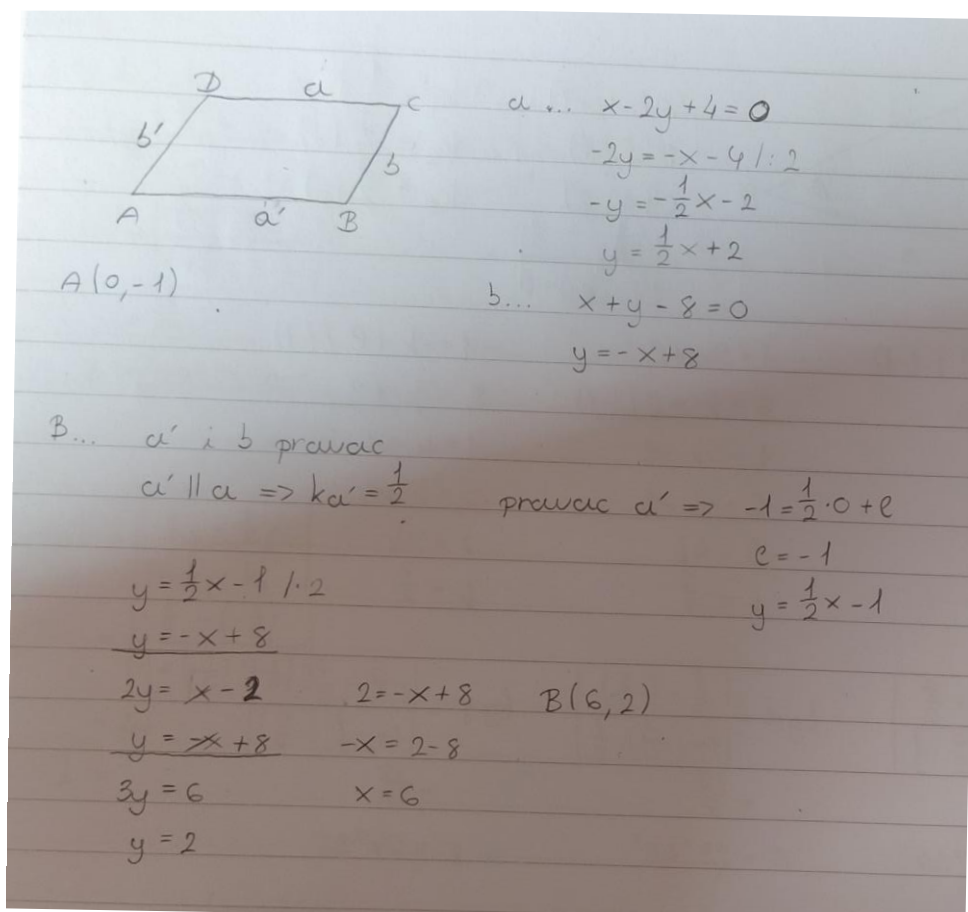 D a C
b' b
A a' B
A(0,-1)
a ... x-2y+4=0
-2y=-x-4 /:2
-y=-1/2x-2
y=1/2x+2
b... x+y-8=0
y=-x+8
B... a' i b pravac
a' || a => ka'=1/2
pravac a' => -1=1/2·0+l
l=-1
y=1/2x-1
y=1/2x-1 /·2
y=-x+8
2y=x-2
y=-x+8
3y=6
y=2
2=-x+8
-x=2-8
x=6
B(6,2)